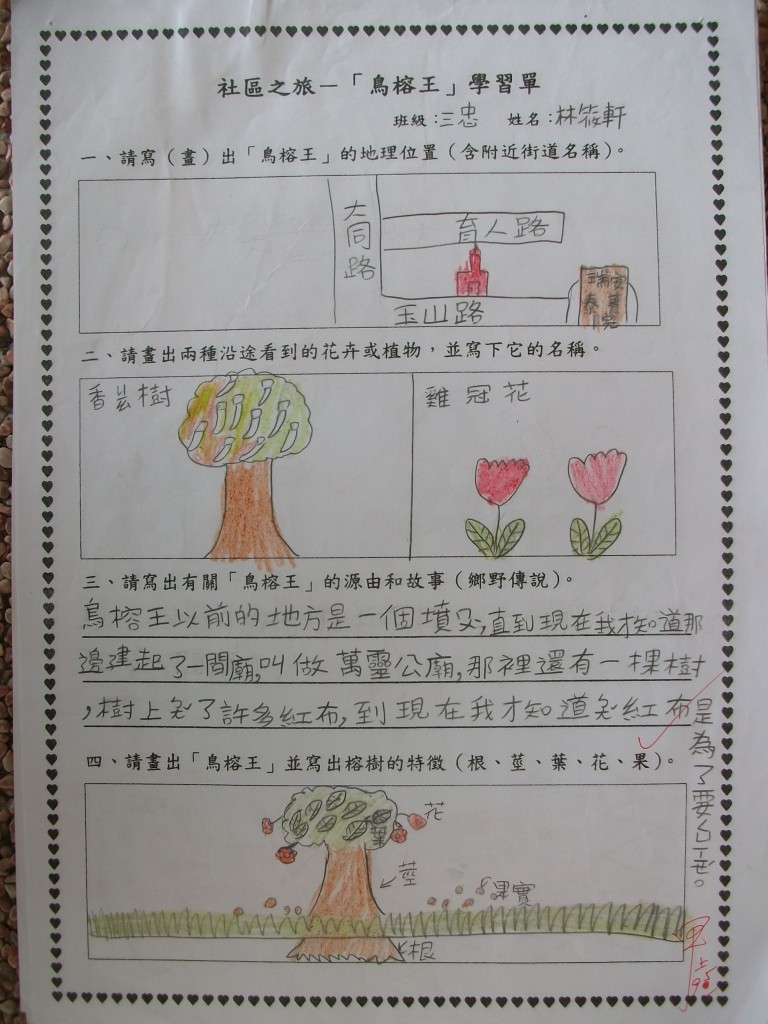 社區之旅－「鳥榕王」學習單
班級：三忠 姓名：林筱軒
一、請寫（畫）出「鳥榕王」的地理位置（含附近街道名稱）。
大同路
育人路
玉山路
瑞泰
二、請畫出兩種沿途看到的花卉或植物，並寫下它的名稱。
香樹
雞冠花
三、請寫出有關「鳥榕王」的源由和故事（鄉野傳說）。
鳥榕王以前的地方是一個墳,直到現在我才知道那
邊建起了一間廟,叫做萬靈公廟,那裡還有一棵樹
,樹上了許多紅布,到現在我才知道紅布是為了要。
四、請畫出「鳥榕王」並寫出榕樹的特徵（根、莖、葉、花、果）。
花
葉
莖
果實
根